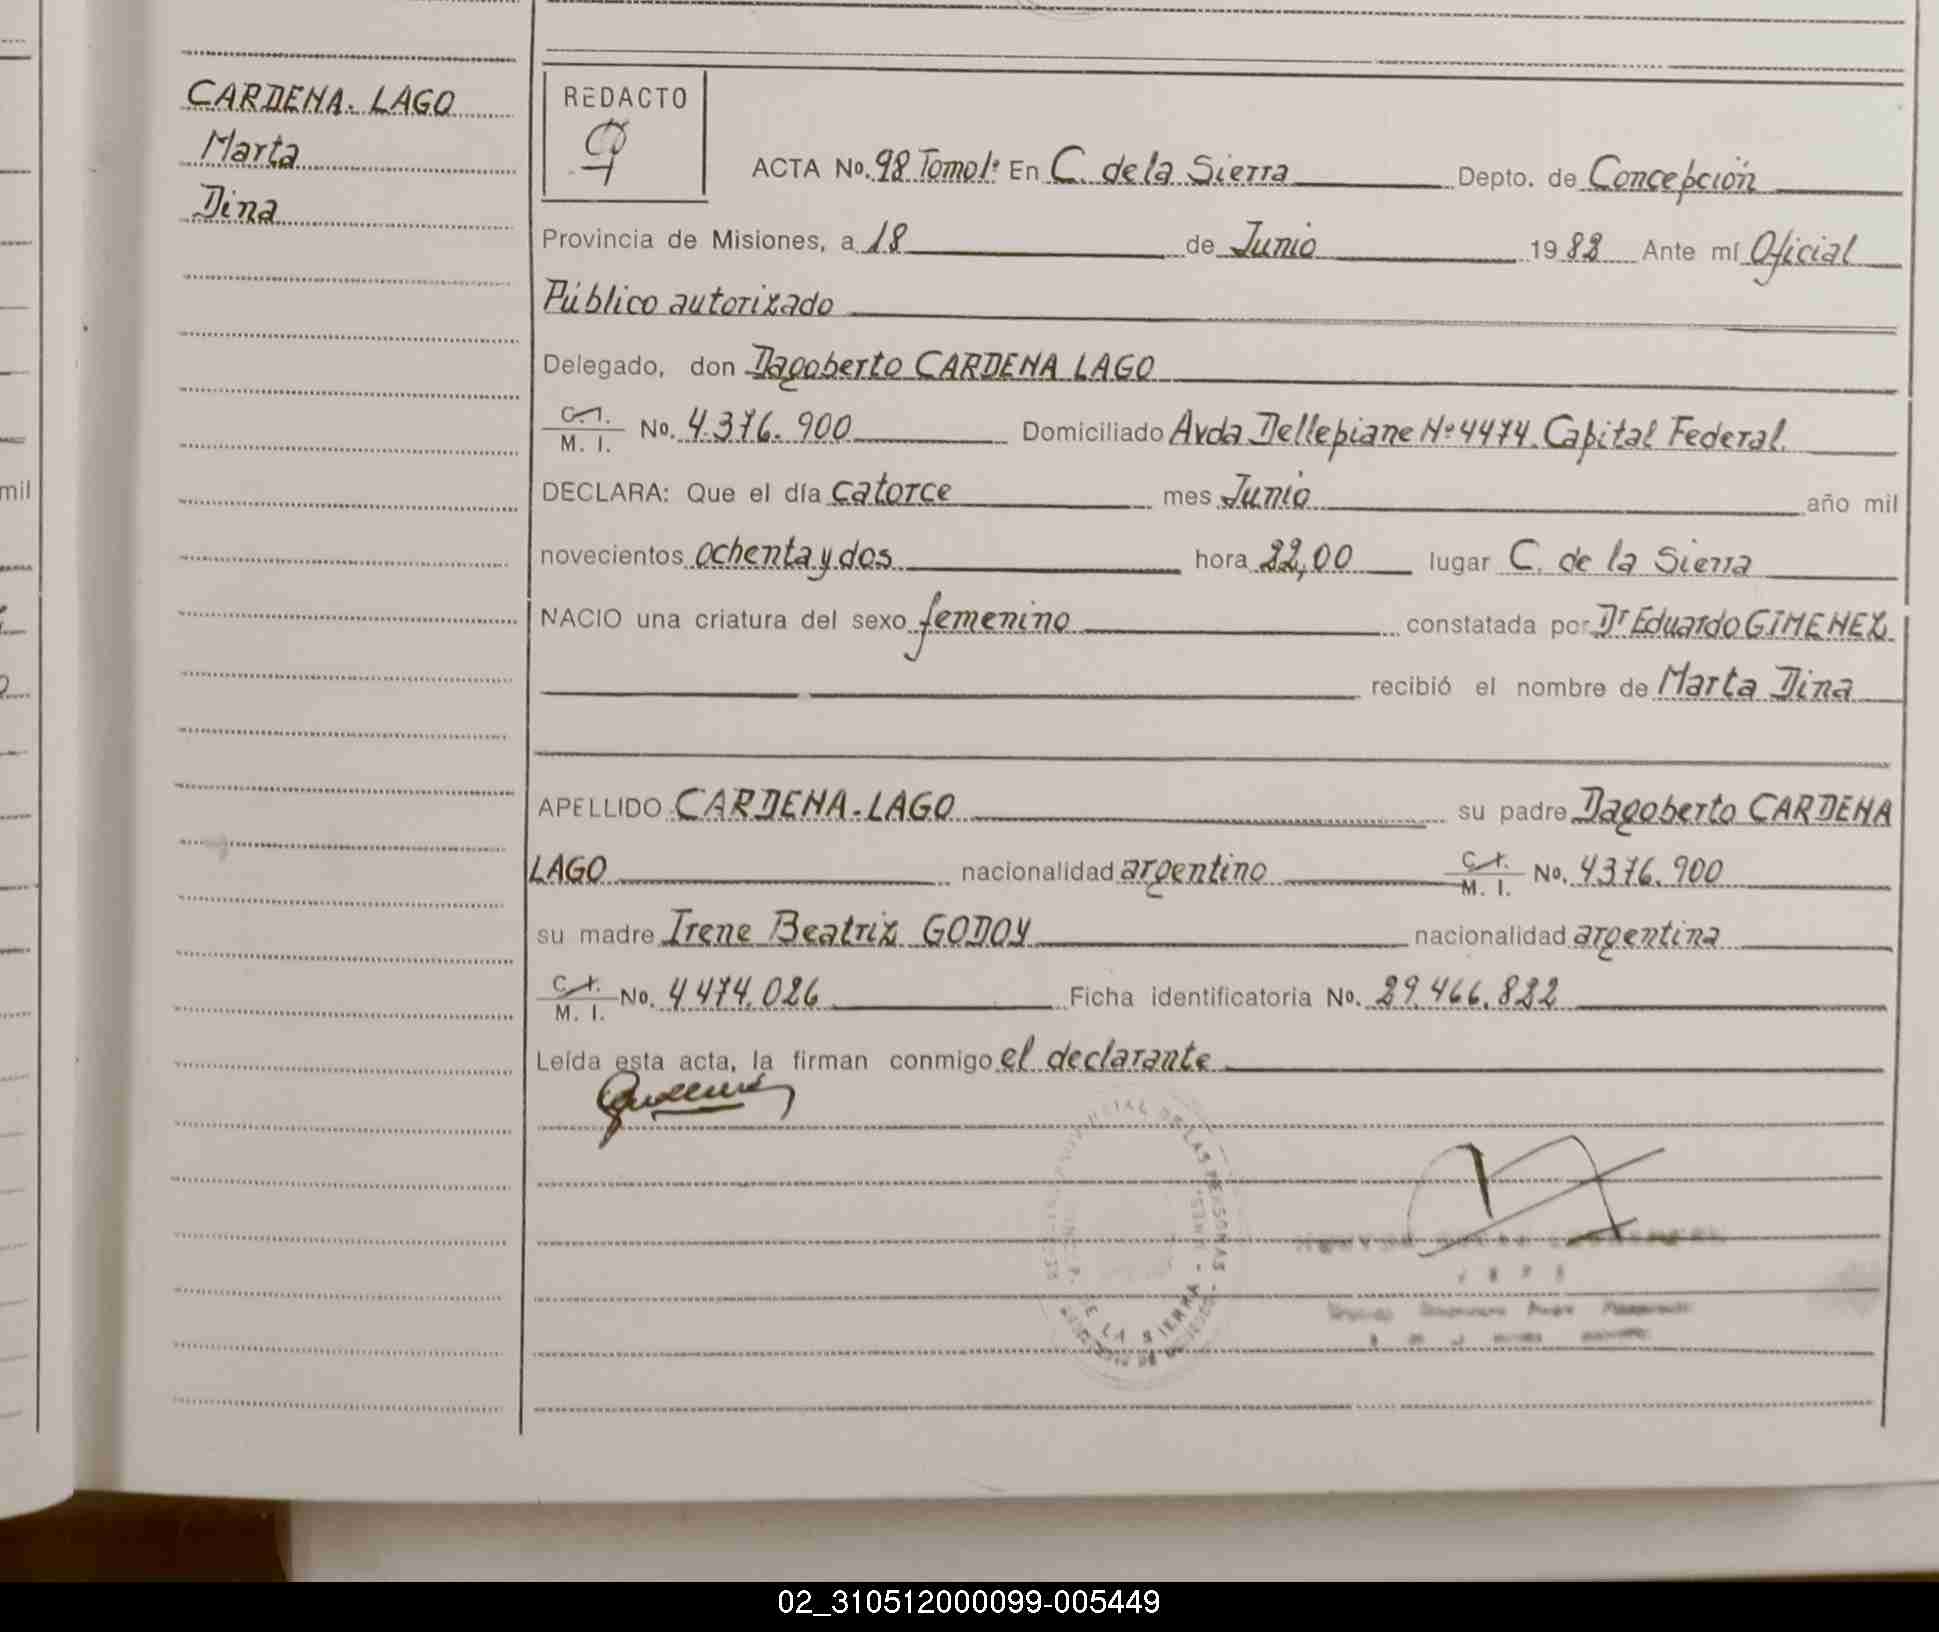 CARDENA. LAGO
Marta
Dina
mil
REDACTO
ACTA No. 98 Tomo 1º En C. de la Sierra Depto. de Concepción
Provincia de Misiones, a 18 de Junio 1982 Ante mí Oficial
Público autorizado
Delegado, don Dagoberto CARDENA LAGO
C. I.
M. I. No. 4.376.900 Domiciliado Avda Dellepiane Nº 4474. Capital Federal.
DECLARA: Que el día catorce mes Junio año mil
novecientos ochenta y dos hora 22,00 lugar C. de la Sierra
NACIO una criatura del sexo femenino constatada por Dr Eduardo GIMENEZ
recibió el nombre de Marta Dina
APELLIDO CARDENA-LAGO su padre Dagoberto CARDENA
LAGO nacionalidad argentino C. I. M. I. No. 4376.900
su madre Irene Beatriz GODOY nacionalidad argentina
C. I.
M. I. No. 4474.026 Ficha identificatoria No. 29.466.822
Leída esta acta, la firman conmigo el declarante
PROVINCIAL DE LAS PERSONAS
DE LA SIERRA
02_310512000099-005449